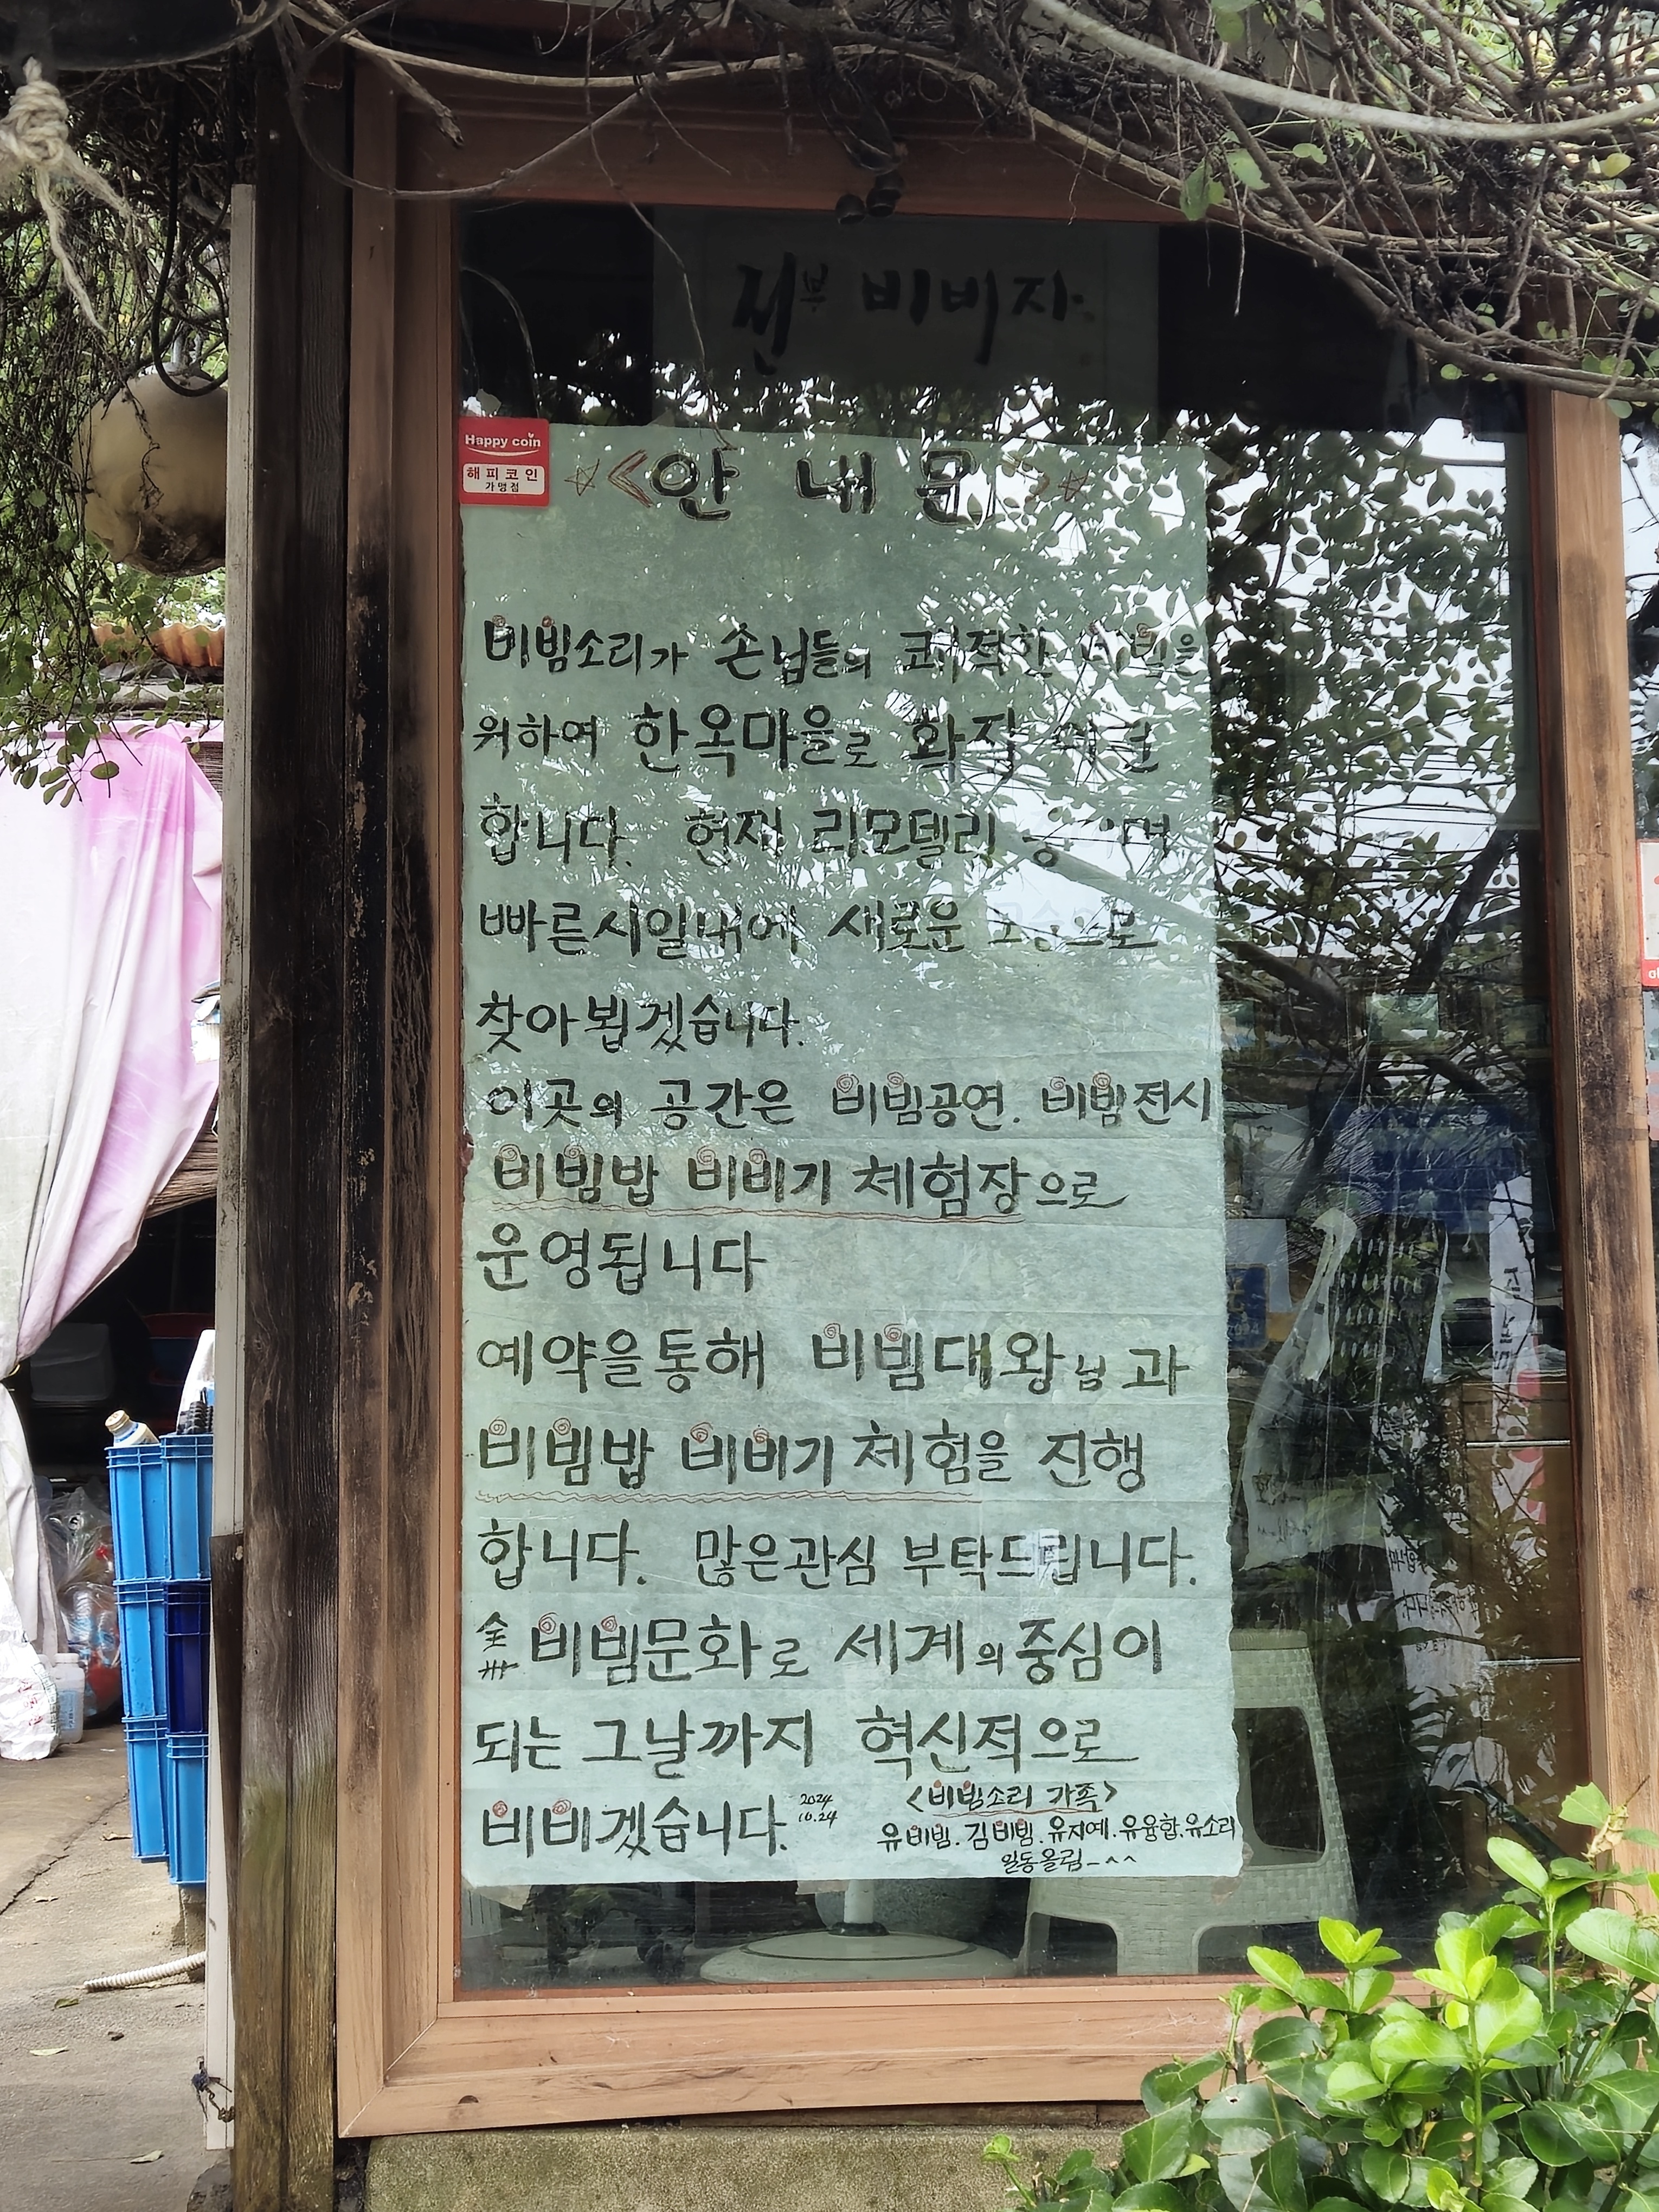 전부 비비자
Happy coin
해피코인
가맹점
<안내문>
비빔소리가 손님들의 쾌적한 비빔을
위하여 한옥마을로 확장 이전
합니다. 현재 리모델링 중이며
빠른시일내에 새로운 모습으로
찾아뵙겠습니다.
이곳의 공간은 비빔공연. 비빔전시
비빔밥 비비기 체험장으로
운영됩니다
예약을통해 비빔대왕님과
비빔밥 비비기 체험을 진행
합니다. 많은관심 부탁드립니다.
全州 비빔문화로 세계의중심이
되는 그날까지 혁신적으로
비비겠습니다. 2024 10.24
<비빔소리 가족>
유비빔. 김비빔. 유지예. 유융합. 유소리
일동올림-^^